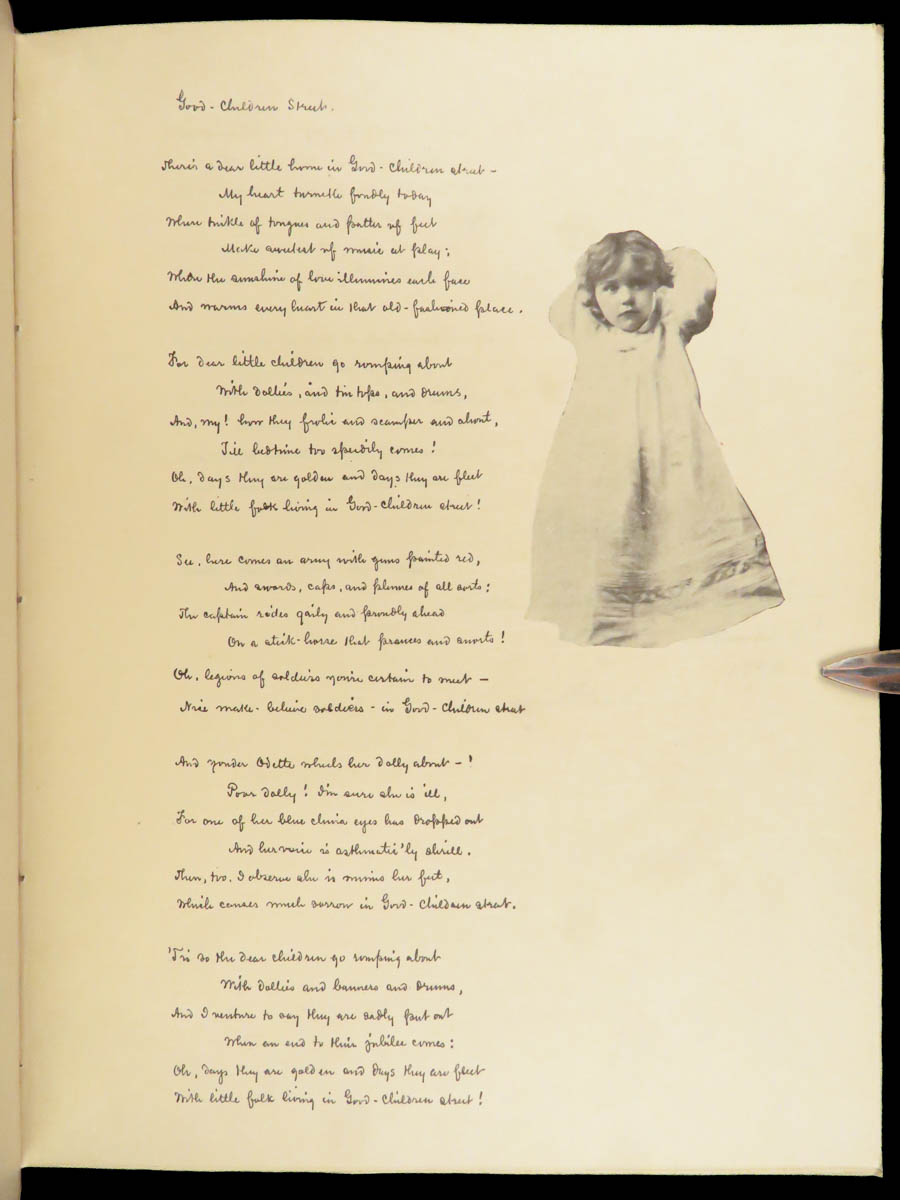 Good-Children Street.
There's a dear little home in Good-Children street –
My heart turneth fondly today
Where tinkle of tongues and patter of feet
Make sweetest of music at play;
Where the sunshine of love illumines each face
And warms every heart in that old-fashioned place.
For dear little children go romping about
With dollies, and tin tops, and drums,
And, my! how they frolic and scamper and shout,
Till bedtime too speedily comes!
Oh, days they are golden and days they are fleet
With little folk living in Good-Children street!
See, here comes an army with guns painted red,
And swords, caps, and plumes of all sorts;
The captain rides gaily and proudly ahead
On a stick-horse that prances and snorts!
Oh, legions of soldiers you're certain to meet –
Nice make-believe soldiers – in Good-Children street
And yonder Odette wheels her dolly about –
Poor dolly! I'm sure she is ill,
For one of her blue china eyes has dropped out
And her voice is asthmatic'ly shrill.
Then, too, I observe she is minus her feet,
Which causes much sorrow in Good-Children street.
'Tis so the dear children go romping about
With dollies and banners and drums,
And I venture to say they are sadly put out
When an end to their jubilee comes:
Oh, days they are golden and days they are fleet
With little folk living in Good-Children street!